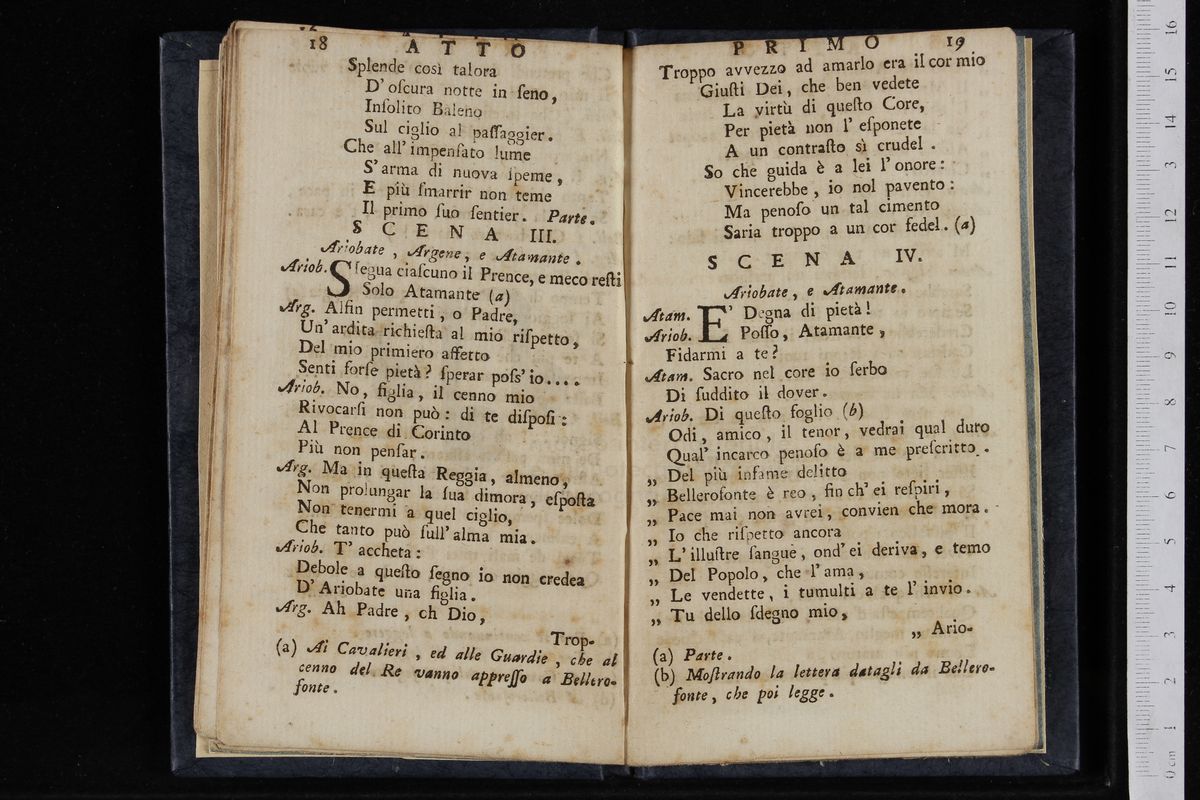 18 ATTO
Splende così talora
D' oſcura notte in ſeno,
Inſolito Baleno
Sul ciglio al paſſaggier.
Che all' impenſato lume
S' arma di nuova ſpeme,
E più ſmarrir non teme
Il primo ſuo ſentier. Parte.
SCENA III.
Ariobate, Argene, e Atamante.
Ariob. Sſegua ciaſcuno il Prence, e meco reſti
Solo Atamante (a)
Arg. Alfin permetti, o Padre,
Un' ardita richieſta al mio riſpetto,
Del mio primiero affetto
Senti forſe pietà? ſperar poſs' io....
Ariob. No, figlia, il cenno mio
Rivocarſi non può: di te diſpoſi:
Al Prence di Corinto
Più non penſar.
Arg. Ma in queſta Reggia, almeno,
Non prolungar la ſua dimora, eſpoſta
Non tenermi a quel ciglio,
Che tanto può ſull' alma mia.
Ariob. T' accheta:
Debole a queſto ſegno io non credea
D' Ariobate una figlia.
Arg. Ah Padre, oh Dio,
Trop-
(a) Ai Cavalieri, ed alle Guardie, che al
cenno del Re vanno appreſſo a Bellero-
fonte.
PRIMO 19
Troppo avvezzo ad amarlo era il cor mio
Giuſti Dei, che ben vedete
La virtù di queſto Core,
Per pietà non l' eſponete
A un contraſto sì crudel.
So che guida è a lei l' onore:
Vincerebbe, io nol pavento:
Ma penoſo un tal cimento
Saria troppo a un cor fedel. (a)
SCENA IV.
Ariobate, e Atamante.
Atam. E' Degna di pietà!
Ariob. Poſſo, Atamante,
Fidarmi a te?
Atam. Sacro nel core io ſerbo
Di ſuddito il dover.
Ariob. Di queſto foglio (b)
Odi, amico, il tenor, vedrai qual duro
Qual' incarco penoſo è a me preſcritto.
„ Del più infame delitto
„ Bellerofonte è reo, fin ch' ei reſpiri,
„ Pace mai non avrei, convien che mora.
„ Io che riſpetto ancora
„ L' illuſtre ſangue, ond' ei deriva, e temo
„ Del Popolo, che l' ama,
„ Le vendette, i tumulti a te l' invio.
„ Tu dello ſdegno mio,
„ Ario-
(a) Parte.
(b) Moſtrando la lettera datagli da Bellero-
fonte, che poi legge.
0 cm 1 2 3 4 5 6 7 8 9 10 11 12 13 14 15 16